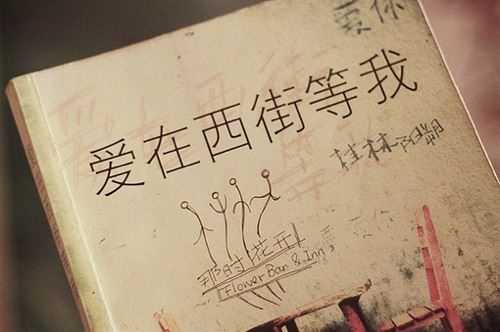 爱你
爱在西街等我
桂林阳朔
那时花开
Flower Bar & Inn
爱你